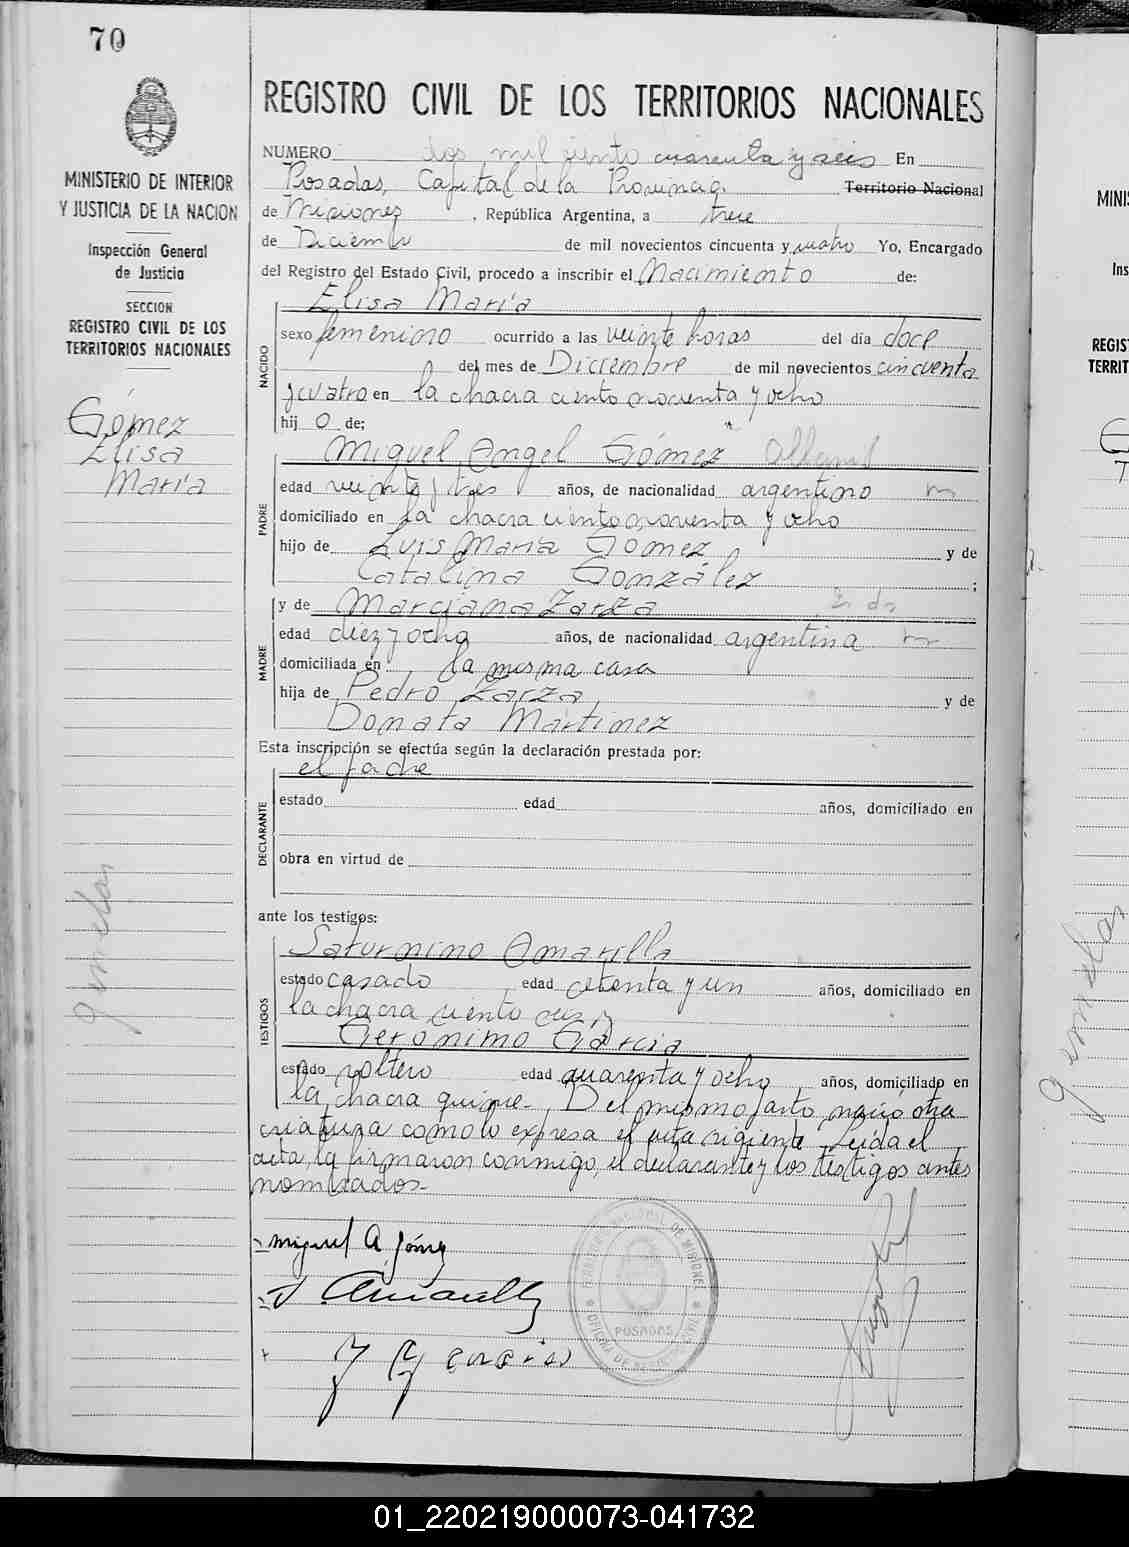 70
MINISTERIO DE INTERIOR
Y JUSTICIA DE LA NACION
Inspección General
de Justicia
SECCION
REGISTRO CIVIL DE LOS
TERRITORIOS NACIONALES
Gómez
Elisa
María
gemelas
REGISTRO CIVIL DE LOS TERRITORIOS NACIONALES
NUMERO dos mil ciento cuarenta y seis En
Posadas, Capital de la Provincia Territorio Nacional
de Misiones, República Argentina, a trece
de Diciembre de mil novecientos cincuenta y cuatro Yo, Encargado
del Registro del Estado Civil, procedo a inscribir el Nacimiento de:
NACIDO
Elisa María
sexo femenino ocurrido a las veinte horas del día doce
del mes de Diciembre de mil novecientos cincuenta
y cuatro en la chacra ciento noventa y ocho
hij o de;
PADRE
Miguel Angel Gómez
edad veinte y tres años, de nacionalidad argentino
domiciliado en la chacra ciento noventa y ocho
hijo de Luis María Gómez y de
Catalina González ;
MADRE
y de Marciana Zarza
edad diez y ocho años, de nacionalidad argentina
domiciliada en la misma casa
hija de Pedro Zarza y de
Donata Martinez
Esta inscripción se efectúa según la declaración prestada por:
DECLARANTE
el padre
estado edad años, domiciliado en
obra en virtud de
ante los testigos:
TESTIGOS
Saturnino Amarilla
estado casado, edad setenta y un años, domiciliado en
la chacra ciento
Gerónimo García
estado soltero edad cuarenta y ocho, años, domiciliado en
la chacra quince. Del mismo parto nació otra
criatura como lo expresa el acta sigiente Leída el
acta, la firmaron conmigo, el declarante y los testigos antes
nombrados.-
Miguel A. Gómez
Amarilla
POSADAS
MINIS
Ins
REGIST
TERRIT
gemelas
01_220219000073-041732